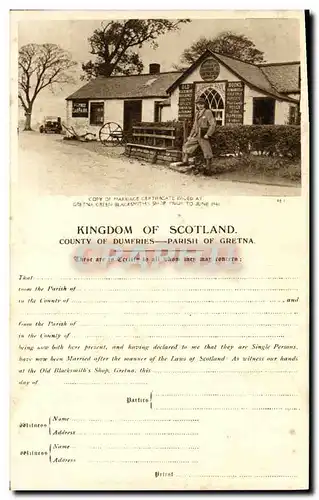 COPY OF MARRIAGE CERTIFICATE USED AT
GRETNA GREEN BLACKSMITH'S SHOP PRIOR TO JUNE 1940
KINGDOM OF SCOTLAND.
COUNTY OF DUMFRIES—PARISH OF GRETNA
These are to Certify to all whom they may concern:
That
from the Parish of
in the County of and
from the Parish of
in the County of
being now both here present, and having declared to me that they are Single Persons,
have now been Married after the manner of the Laws of Scotland: As witness our hands
at the Old Blacksmith's Shop, Gretna, this
day of
Parties
Witness Name
Address
Witness Name
Address
Priest